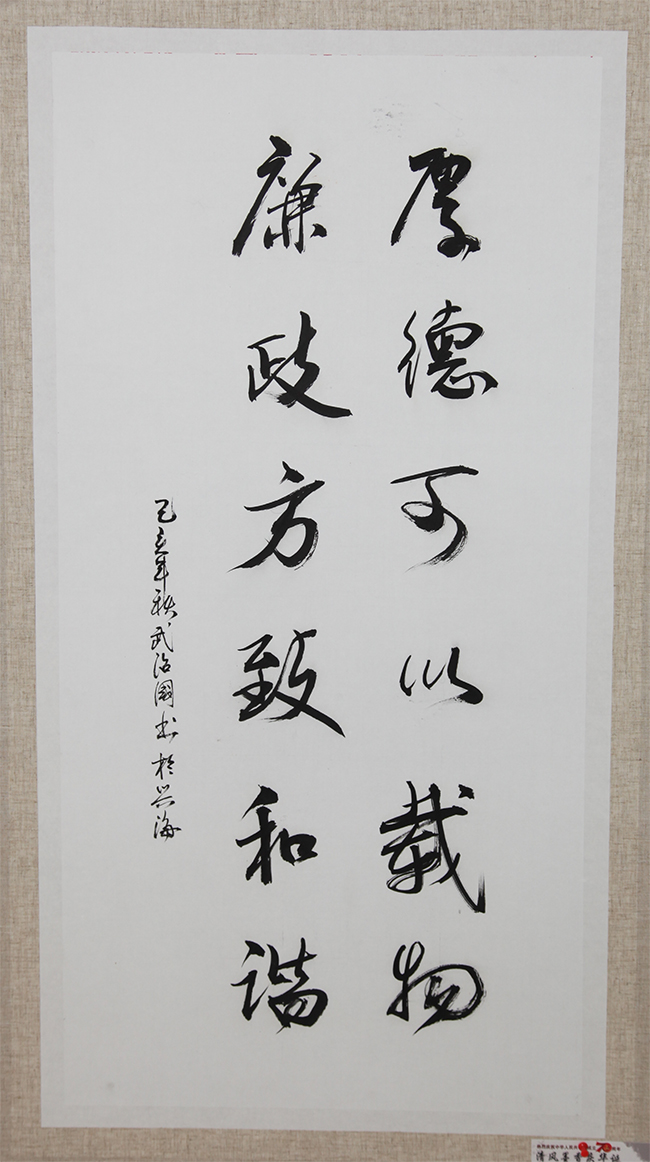 厚德可以载物
廉政方致和谐
己亥年秋武治國书於兴海
清风墨香